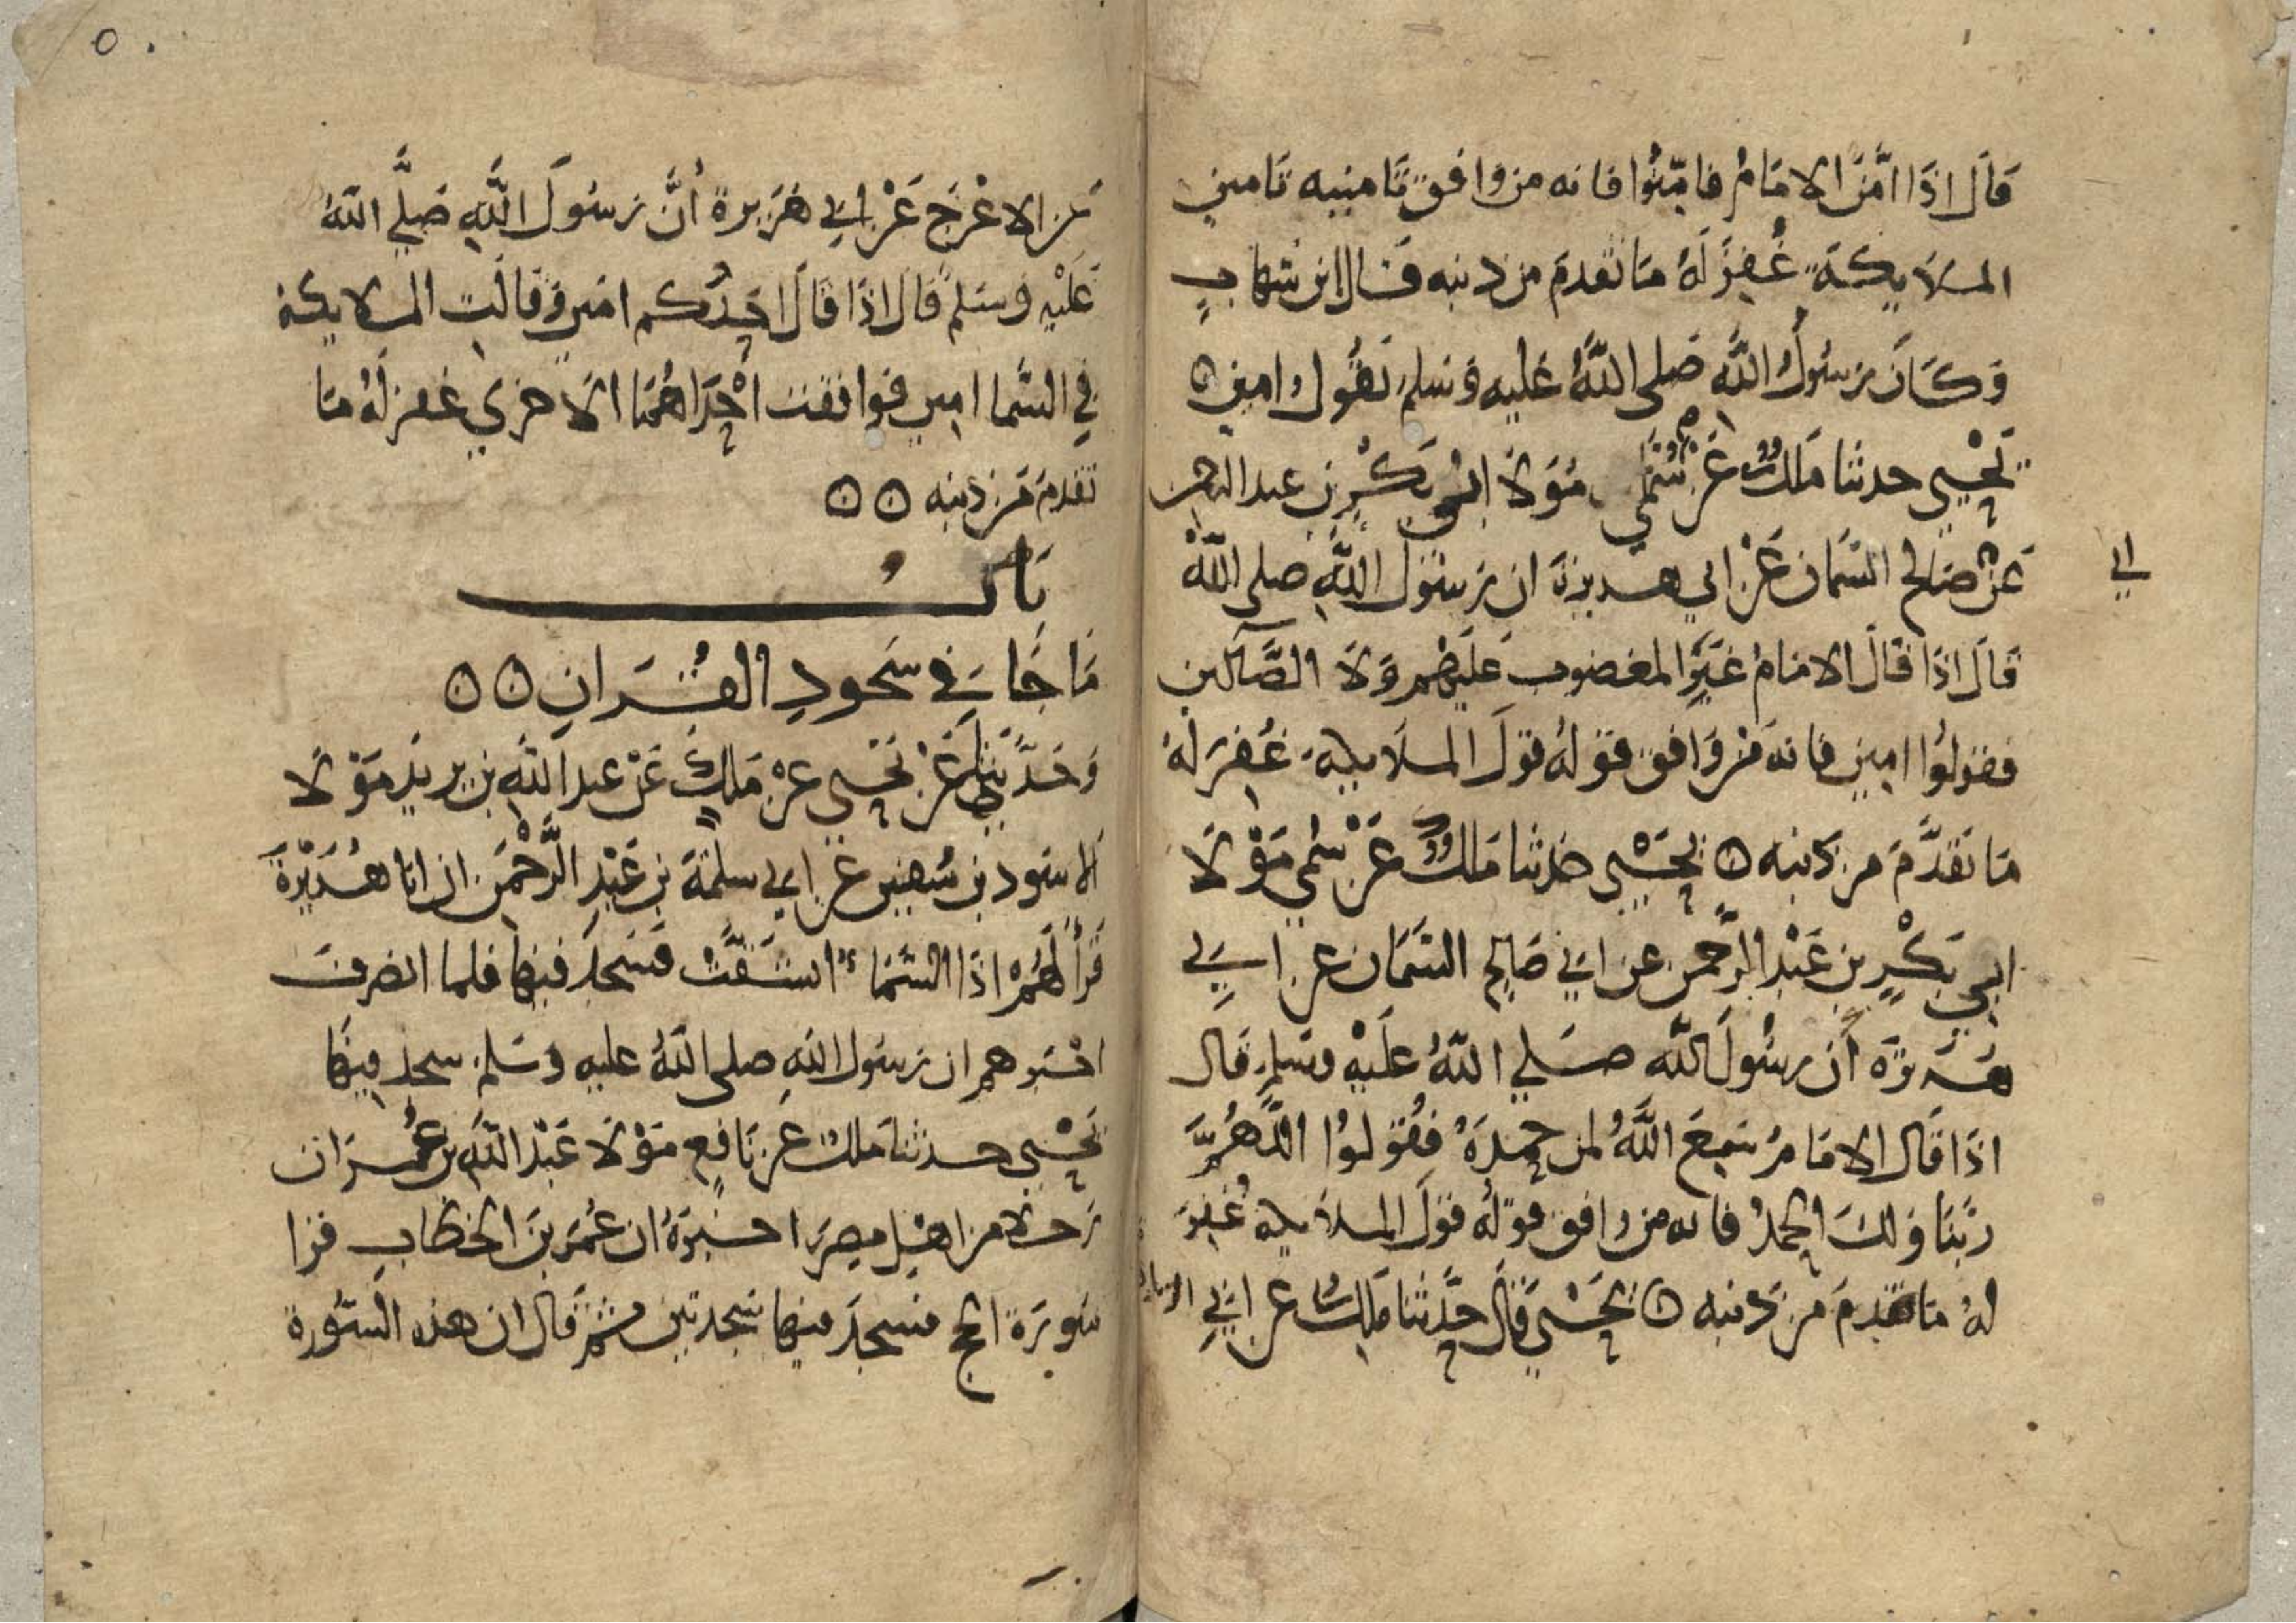 قَالَ اذَا امَّنَ الامَامُ فامِّنُوا فانه من وافق تَامينه تَامين
الملَايكَة غُفِرَ لَهُ مَا تقدمَ من ذنبه قال ابن شهابٍ
وَكَانَ رسُولُ اللَّه صَلى اللَّهُ عَليه وَسلم يَقُول امين ۞
يَحْيى حدثنا مَالكٌ عَن سُمَّي مَوْلَا ابي بَكْرِ بن عبد الرحمن
عَنْ صَالح السَّمان عَنْ ابي هريرة ان رسُولَ اللَّهِ صلى اللَّهُ
ابي
قَالَ اذَا قَالَ الامَامُ غَيرِ المغضوب عَلَيْهم وَلَا الضَّآلين
فقولُوا امين فانه مَنْ وَافق قولهُ قولَ الملَايكة غُفرَ لهُ
مَا تَقَدَّمَ من ذَنبه ۞ يَحْيَى حدثنا مَالكٌ عَنْ سُمي مَوْلَا
ابي بَكْرِ بن عَبْد الرَّحمن عن ابي صَالحٍ السَّمَان عن ابي
هُرَيرَة أن رسُولَ اللَّه صَلي اللَّهُ عَلَيْهِ وسَلم قَال
اذَا قَال الامَامُ سَمِعَ اللَّهُ لمن حَمِدَهُ فقُولوُا اللَّهُمَّ
رَبَّنَا وَلكَ الحمدُ فانه من وافق قولهُ قولَ الملَايكة غُفِرَ
لهُ مَا تقدمَ من ذَنبه ۞ يَحْيَى قَالَ حَدَّثنَا مَالكٌ عن ابي الزناد
٥٠
عَن الاعْرَج عَنْ ابي هُرَيرة أنَّ رسُولَ اللَّهِ صَلَّي اللَّهُ
عَلَيْهِ وسَلم قَالَ اذَا قَالَ احَدُكم امين وَقالَت الملايكة
فِي السَّما امين فوافقت احْدَاهُمَا الَاخري غفر لَهُ مَا
تقدمَ مَن ذنبه ۞ ۞
بَابُ
مَا جَا فِي سَجُودِ القُرَانِ ۞ ۞
وَحَدَّثنا عَنْ يَحْيى عَنْ مَالكٍ عَنْ عبد اللَّهِ بن يزيد مَوْلَا
الاسود بن سُفين عن ابي سلمَةَ بن عَبْدِ الرَّحْمَن ان ابا هُرَيْرَةَ
قَرَأ لَهُمْ اذَا السَّمَاءُ انشَقَّتْ فَسَجدَ فيهَا فلما انصرفَ
اخبرهم ان رسُول اللَّهِ صلى اللَّهُ عليه وسَلم سجد فيهَا
يَحْيى حدثنَا مَالك عَن نَافع مَوْلَا عَبْد اللَّه بن عُمَر ان
رَجلا من اهْل مصرَ اخبَرهُ ان عُمَر بنَ الخطابِ قرَا
سُورَة الحج فسجدَ فيهَا سَجدتين ثم قَال ان هذه السُّورة